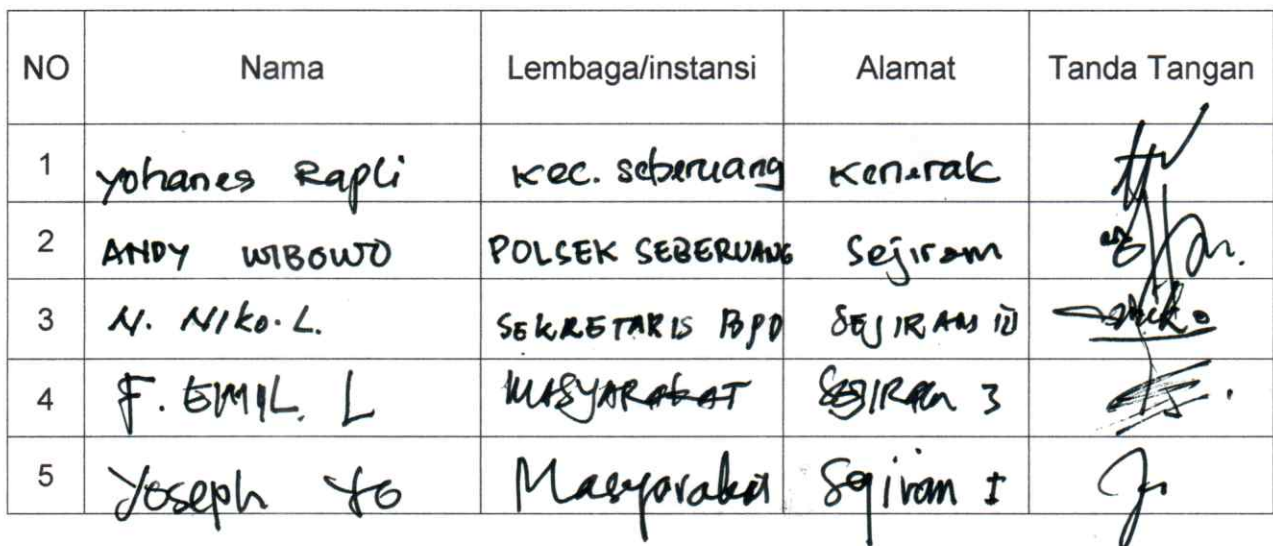 NO Nama Lembaga/instansi Alamat Tanda Tangan
1 Yohanes Rapli Kec. Seberuang Kenerak
2 ANDY WIBOWO POLSEK SEBERUANG Sejiram
3 N. Niko. L. SEKRETARIS BPD SEJIRAM III
4 F. EMIL. L MASYARAKAT SEJIRAM 3
5 Yoseph Yo Masyarakat Sejiram I